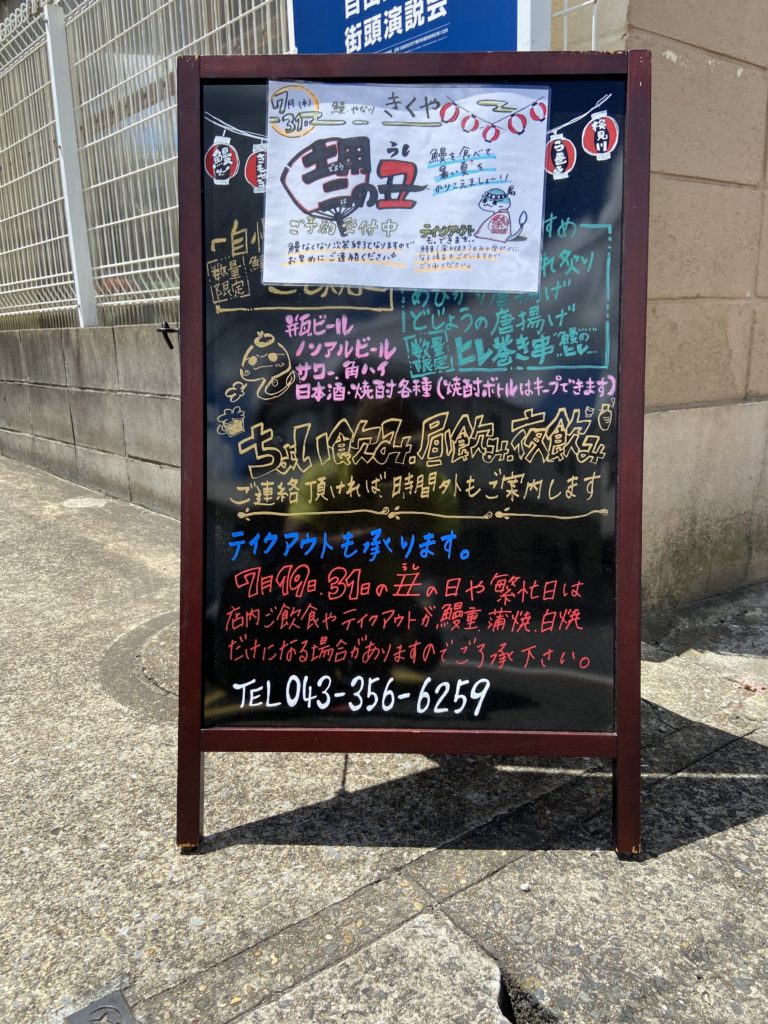 街頭演説会
7月31日(水)
鰻・やなり きくや
土用
二の丑
どよう
うし
鰻を食べて
暑い夏を
のりこえましょー!!
ご予約受付中
鰻なくなり次第終了となりますので
お早めにご連絡ください
テイクアウト
もできます。
ご了承ください。
鰻
桜見川
数量
限定
どじょうの唐揚げ
数量
限定
ヒレ巻き串
鰻の
ヒレ
瓶ビール
ノンアルビール
サワー.角ハイ
日本酒・焼酎各種(焼酎ボトルはキープできます)
ちょい飲み.昼飲み.夜飲み
ご連絡頂ければ時間外もご案内します
テイクアウトも承ります。
うし
7月19日.31日の丑の日や繁忙日は
店内ご飲食やテイクアウトが鰻重.蒲焼.白焼
だけになる場合がありますのでご了承下さい。
TEL 043-356-6259